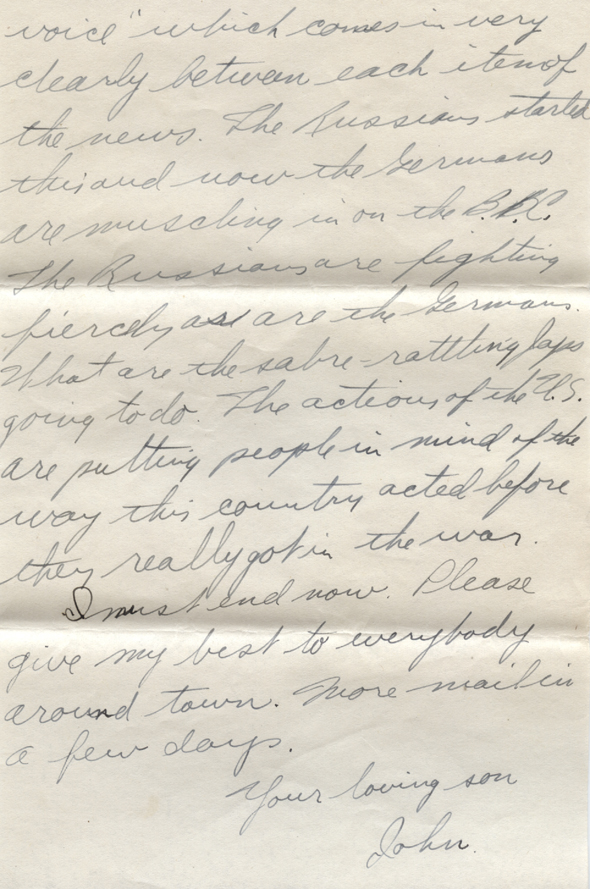 voice" which comes in very
clearly between each item of
the news. The Russians started
this and now the Germans
are muscling in on the B.B.C.
The Russians are fighting
fiercely as are the Germans.
What are the sabre-rattling Japs
going to do. The actions of the U.S.
are putting people in mind of the
way this country acted before
they really got in the war.
I must end now. Please
give my best to everybody
around town. More mail in
a few days.
Your loving son
John.